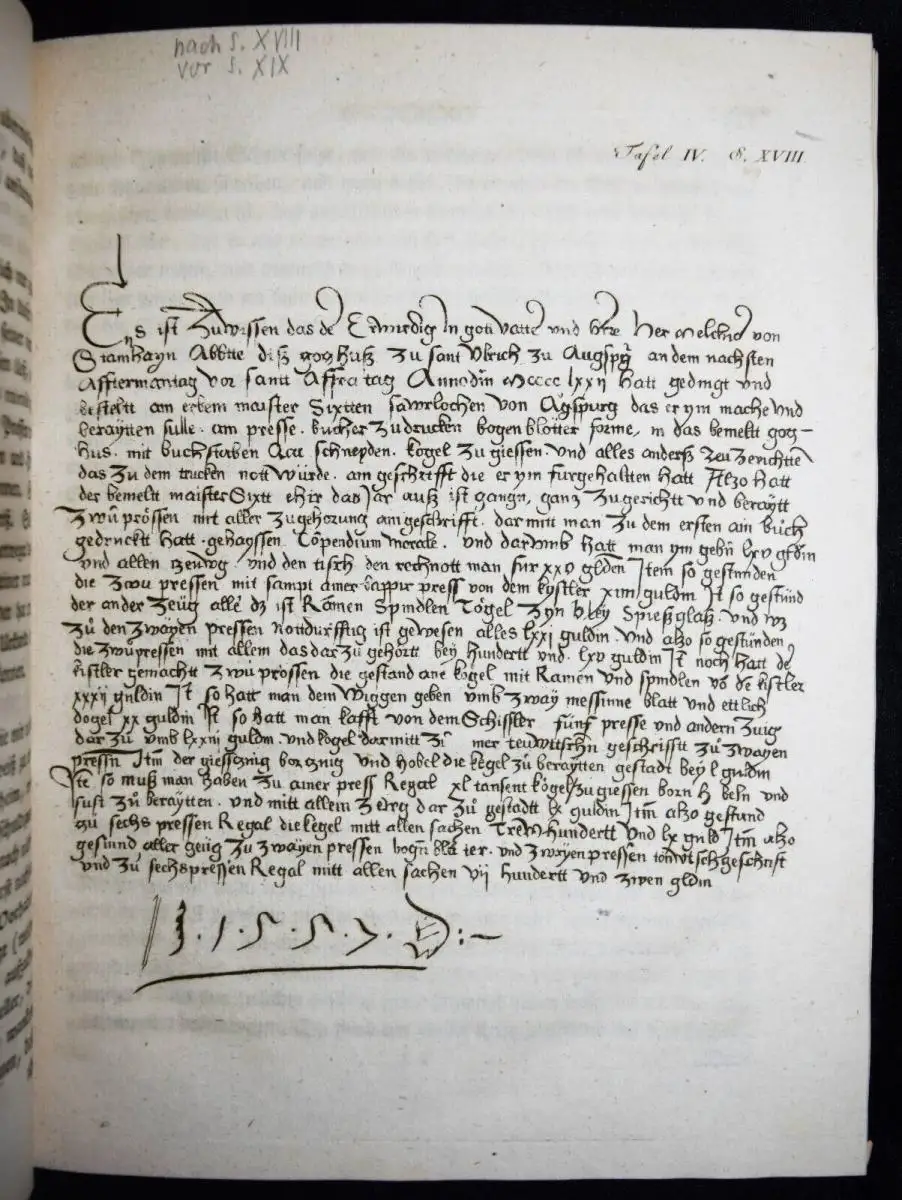 nach S. XVIII
vor S. XIX
Tafel IV. S. XVIII.
Es ist Zuwissen das de Erwirdig in gott vatte und here Her Melchior von
Stamhayn Abbtte diß goghuß zu sant Ulrich zu Augspg an dem nachsten
Affttermantag vor santt Affra tag Annodm Mcccc lxxij hatt gedingt und
bestellt am erbem maister Sixtten sawrlochen von Agspurg das er ym mache und
beraytten sulle. am presse. bucher zudrucken bogen blötter forme, in das bemeltt gog-
hus. mit buchstaben schneyden. kogel zu giessen. und alles anderß
das zu dem trucken nott würde. am geschrifft die er ym furgehaltten hatt Alzo hatt
der bemeltt maister Sixtt ehir das Jar auß ist gangn, ganz zugerichtt und beraytt
zwu prössen mit aller zugehorung aingeschrifft. dar mitt man zu dem ersten ain buch
gedrucktt hatt. gehayssen Cōpendium morale. und darumb hatt man ym gebn lxv gldin
und allen zeuwg. und den tisch den rechnott man fur xxv glden Item so gestunden
die zwu pressen mit sampt ainer press von dem kystler xim guldin It so gestünd
der ander zeüg alle dz ist Ramen Spindlen Tögel zyn bley Spießglaß. und wz
zu den zwayen pressen nottdurfftig ist gewesen alles lxxi guldin. Und alzo so gestunden
die zwupressen mit allem das dar zu gehortt bey hundertt und. lxv guldin It noch hatt de
kistler gemachtt zwu prossen die gestand ane kogel mit Ramen und spindlen vō de kistler
xxxij guldin It so hatt man dem Wiggen geben umb zway messinne blatt und ettlich
dogel xx guldin It so hatt man kafft von dem Schissler fünf presse und andern zuig
dar zu umb lxxiij guldin. und kogel dar mitt zu mer geschrifft zu zwayen
pressn Itm der giesszuig und hobel die kegel zu beraytten gestadt bey l guldin
Ite so muß man haben zu ainer press Regal xl tausent kögel zu giessen und
sust zu beraytten. und mitt allem zerg dar zu gestadtt lx guldin Itm alzo gestund
zu sechs pressen Regal die kegel mitt allen sachen hundertt und lx guld Itm alzo
gestund aller geüg zu zwayen pressen bogn und zwayen pressen
und zu sechspressen Regal mitt allen sachen vij hundertt und zwen gldin